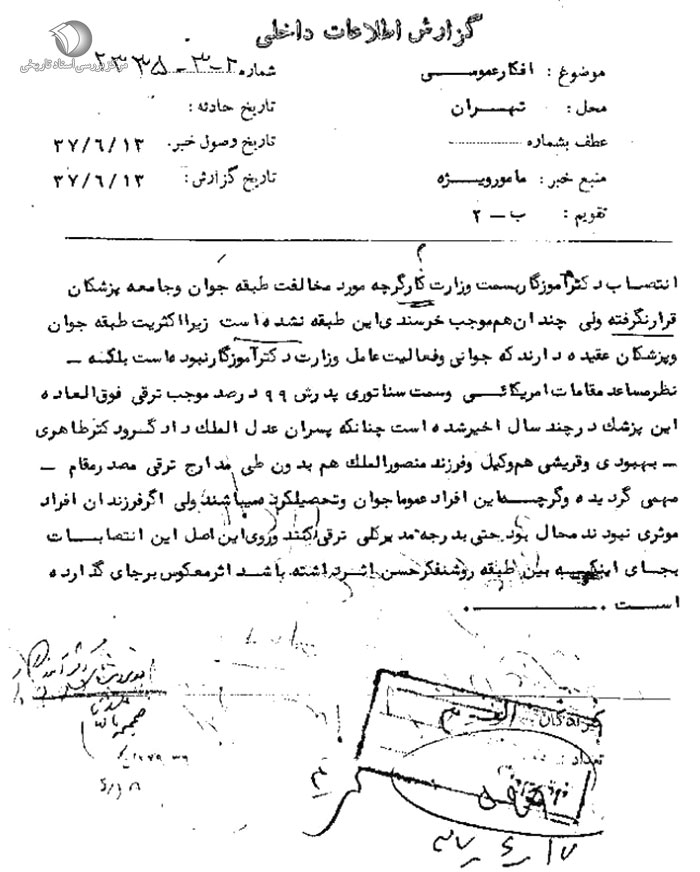 مرکز بررسی اسناد تاریخی
گزارش اطلاعات داخلی
موضوع : افکار عمومی
شماره ۲-۳-۲۳۳۵
محل : تهران
تاریخ حادثه :
عطف بشماره
تاریخ وصول خبر. ۳۷/۶/۱۳
منبع خبر : مامور ویژه
تاریخ گزارش : ۳۷/۶/۱۳
تقویم : ب – ۲
انتصاب دکتر آموزگار بسمت وزارت کار گرچه مورد مخالفت طبقه جوان و جامعه پزشکان
قرار نگرفته ولی چندان هم موجب خرسندی این طبقه نشده است زیرا اکثریت طبقه جوان
و پزشکان عقیده دارند که جوانی و فعالیت عامل وزارت دکتر آموزگار نبوده است بلکه –
نظر مساعد مقامات امریکائی و سمت سناتوری پدرش ۹۹ درصد موجب ترقی فوق العاده
این پزشک در چند سال اخیر شده است چنانکه پسران عدل الملک دادگر و دکتر طاهری
– بهبودی و قریشی هم وکیل و فرزند منصورالملک هم بدون طی مدارج ترقی مصدر مقام –
مهمی گردیده و گرچه این افراد عموما جوان و تحصیلکرده میباشند ولی اگر فرزندان افراد
موثری نبودند محال بود حتی بدرجه مدیر کلی ترقی کنند و روی این اصل این انتصابات
بجای اینکه بین طبقه روشنفکر حسن اثر داشته باشد اثر معکوس بر جای گذارده
است .
گیرندگان
تعداد :
۳۷/۶/۱۷